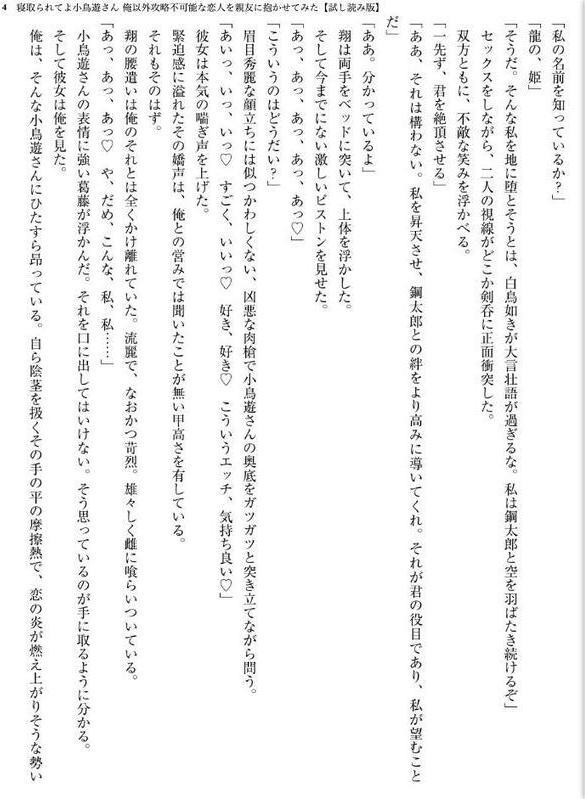 4 寝取られてよ小鳥遊さん 俺以外攻略不可能な恋人を親友に抱かせてみた【試し読み版】
「私の名前を知っているか？」
「龍の、姫」
「そうだ。そんな私を地に堕とそうとは、白鳥如きが大言壮語が過ぎるな。私は鋼太郎と空を羽ばたき続けるぞ」
セックスをしながら、二人の視線がどこか剣呑に正面衝突した。
双方ともに、不敵な笑みを浮かべる。
「一先ず、君を絶頂させる」
「ああ、それは構わない。私を昇天させ、鋼太郎との絆をより高みに導いてくれ。それが君の役目であり、私が望むこと
だ」
「ああ。分かっているよ」
翔は両手をベッドに突いて、上体を浮かした。
そして今までにない激しいピストンを見せた。
「あっ、あっ、あっ、あっ、あっ♡」
「こういうのはどうだい？」
眉目秀麗な顔立ちには似つかわしくない、凶悪な肉槍で小鳥遊さんの奥底をガツガツと突き立てながら問う。
「あいっ、いっ、いっ♡　すごく、いいっ♡　好き、好き♡　こういうエッチ、気持ち良い♡」
彼女は本気の喘ぎ声を上げた。
緊迫感に溢れたその嬌声は、俺との営みでは聞いたことが無い甲高さを有している。
それもそのはず。
翔の腰遣いは俺のそれとは全くかけ離れていた。流麗で、なおかつ苛烈。雄々しく雌に喰らいついている。
「あっ、あっ、あっ♡　や、だめ、こんな、私、私……」
小鳥遊さんの表情に強い葛藤が浮かんだ。それを口に出してはいけない。そう思っているのが手に取るように分かる。
そして彼女は俺を見た。
俺は、そんな小鳥遊さんにひたすら昂っている。自ら陰茎を扱くその手の平の摩擦熱で、恋の炎が燃え上がりそうな勢い